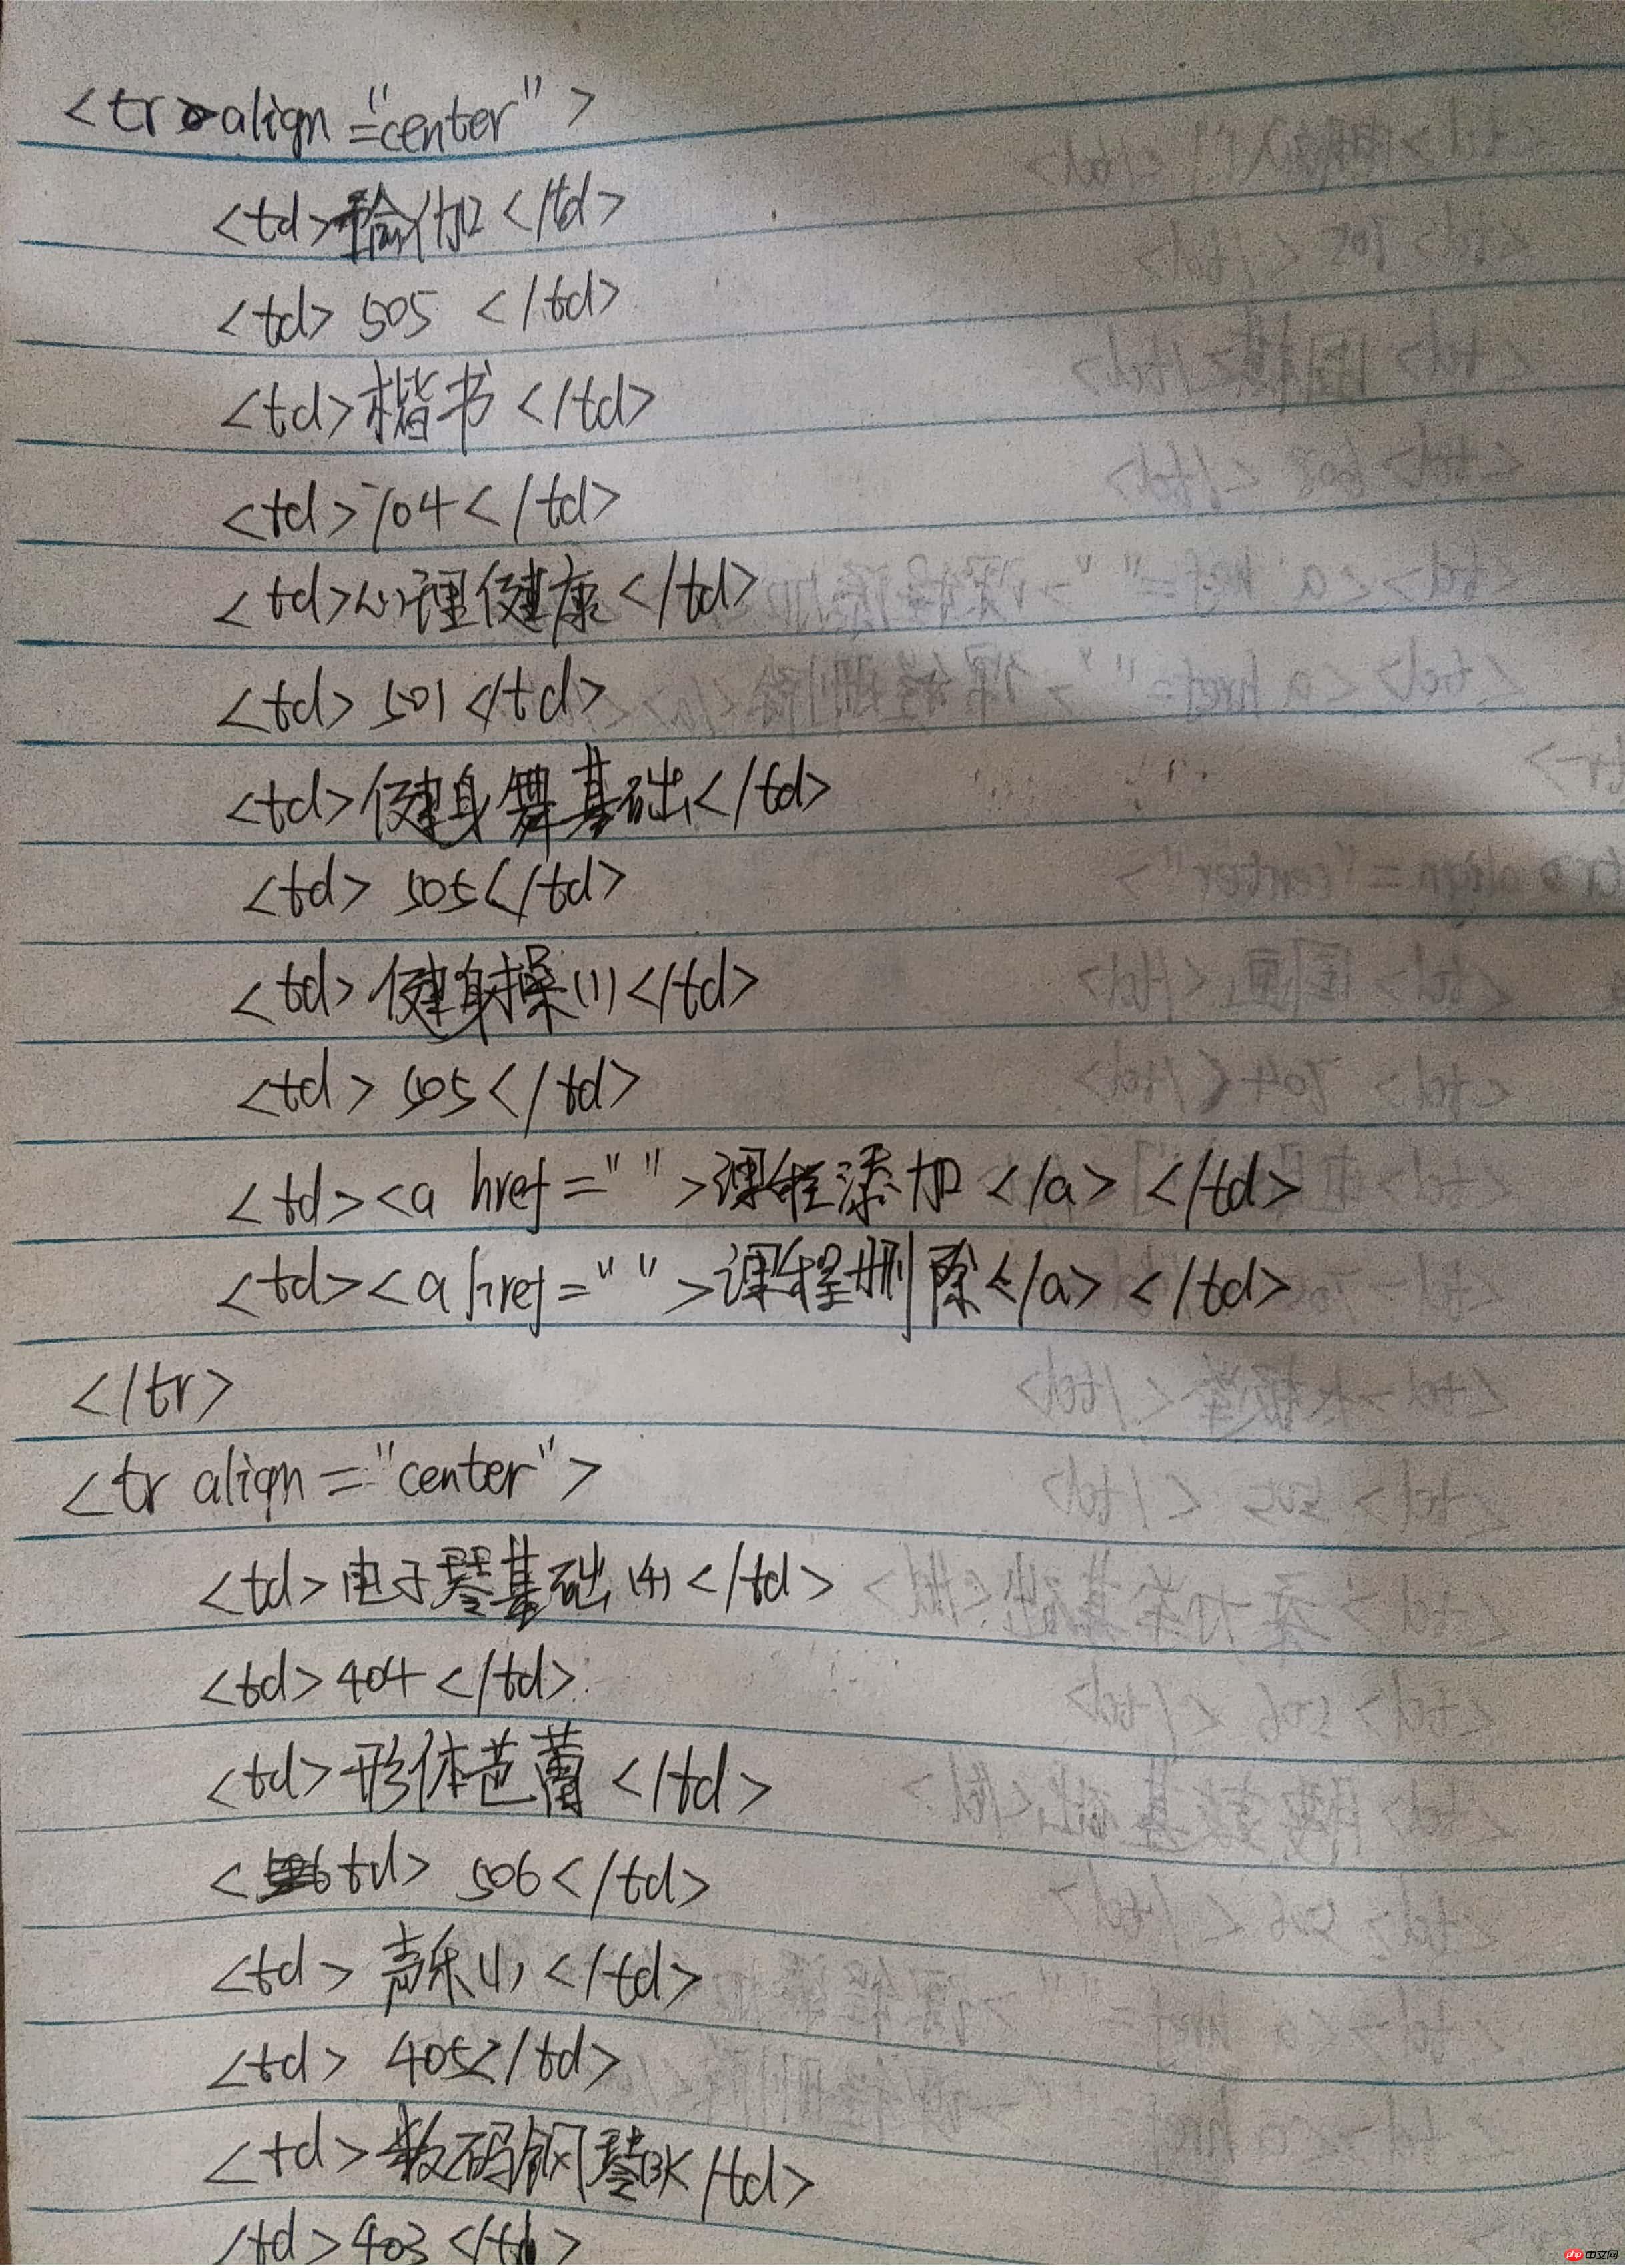 <tr align="center">
<td>输加</td>
<td>505</td>
<td>楷书</td>
<td>704</td>
<td>心理健康</td>
<td>501</td>
<td>健身舞基础</td>
<td>505</td>
<td>健身操(1)</td>
<td>505</td>
<td><a href="">课程添加</a></td>
<td><a href="">课程删除</a></td>
</tr>
<tr align="center">
<td>电子琴基础(4)</td>
<td>404</td>
<td>形体芭蕾</td>
<td>506</td>
<td>声乐(1)</td>
<td>405</td>
<td>数码钢琴(3)</td>
<td>403</td>
php 中文网